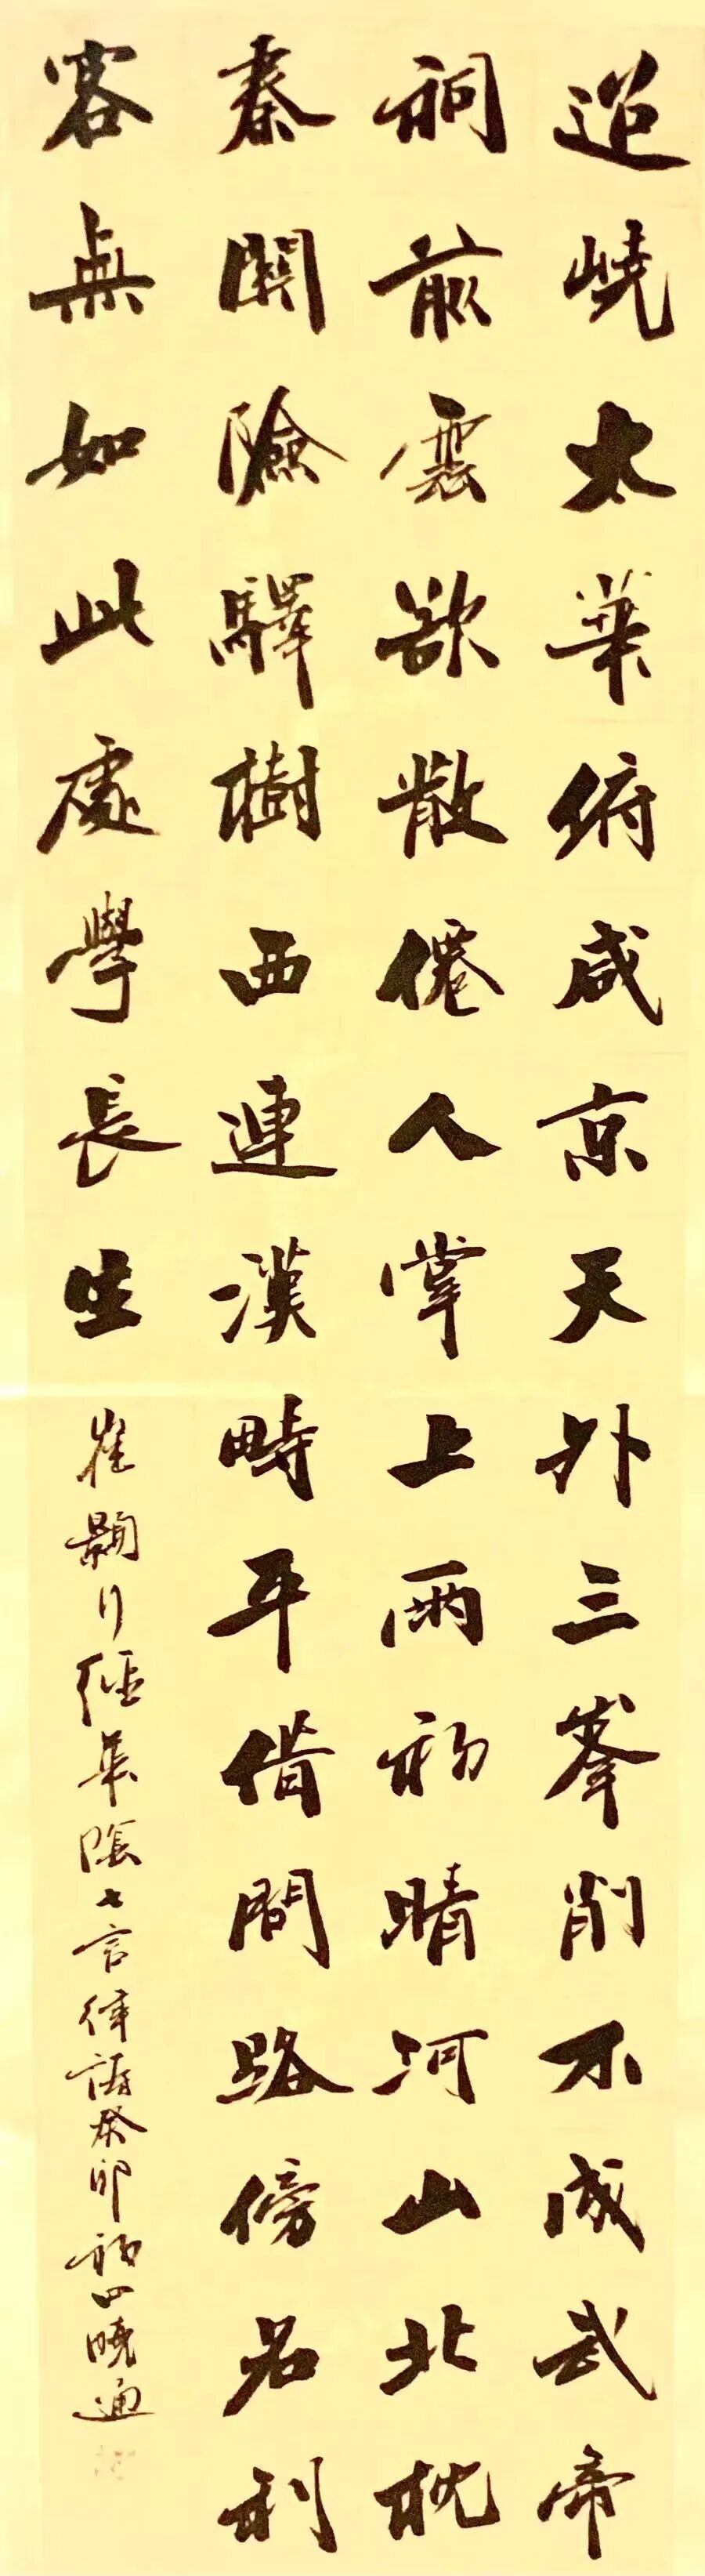 迢嶢太華俯咸京天外三峯削不成武帝
祠前雲欲散僊人掌上雨初晴河山北枕
秦關險驛樹西連漢畤平借問路傍名利
客無如此處學長生
崔顥行經華陰七言律詩癸卯初四曉通